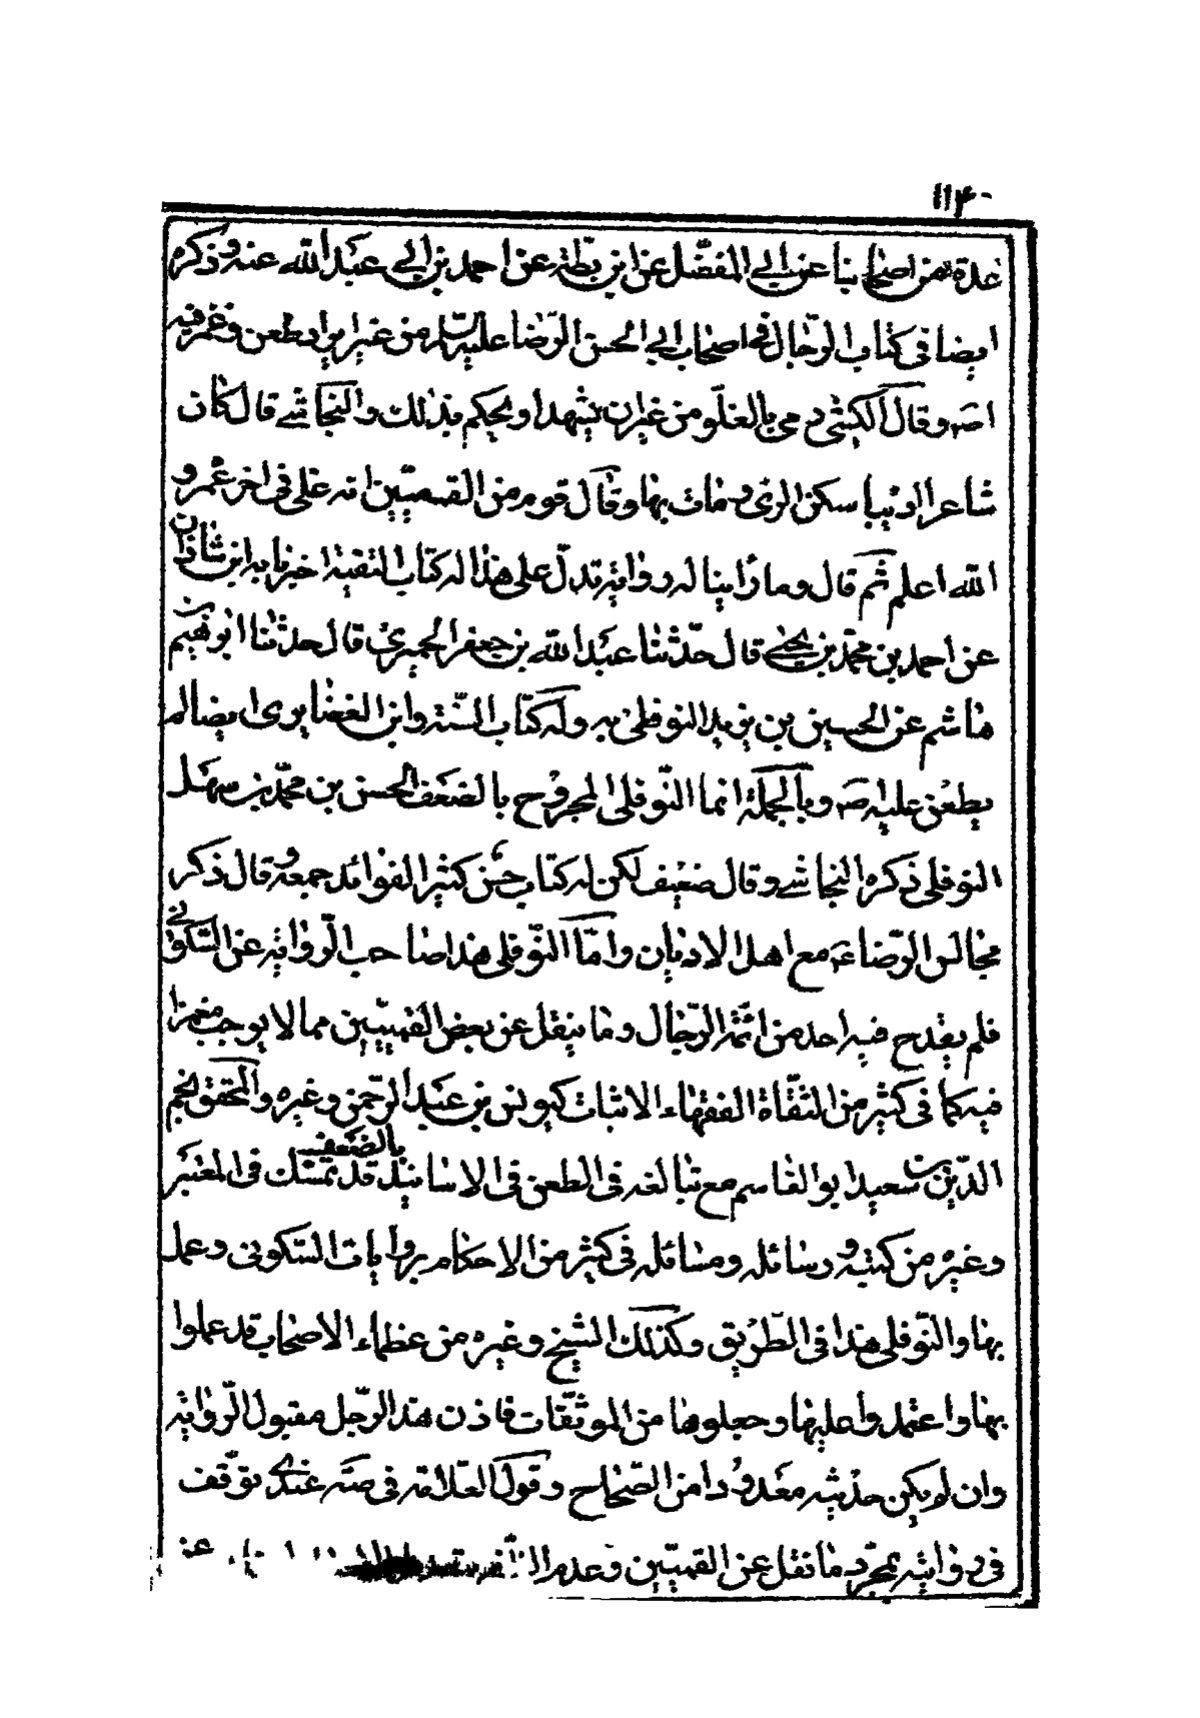 ١١۴٠
عدة من اصحابنا عن ابي المفضّل عن ابن بطّة عن احمد بن ابي عبد الله عنه وذكره
ايضا في كتاب الرّجال في اصحاب ابي الحسن الرّضا عليه السلام من غير ايراد طعن وغمز فيه
اصـ وقال الكشي رمي بالغلّو من غير ان يشهد او يحكم بذلك والنجاشي قال كان
شاعرا اديبا سكن الرّي ومات بها وقال قوم من القميّين انه غلى في اخر عمره و
الله اعلم ثم قال وما راينا له رواية تدلّ على هذا له كتاب التقية اخبرنا به ابن شاذان
عن احمد بن محمّد بن يحيى قال حدّثنا عبد الله بن جعفر الحميري قال حدثنا ابرهيم بن
هاشم عن الحسين بن يزيد النوفلي به وله كتاب السّنة وابن الغضايري ايضا لم
يطعن عليه صـ وبالجملة انما النّوفلي المجروح بالضعف الحسن بن محمّد بن سهل
النوفلي ذكره النجاشي وقال ضعيف لكن له كتاب حسن كثير الفوائد جمعه وقال ذكر
مجالس الرّضاء ع مع اهل الاديان وامّا النّوفلي هذا صاحب الرّواية عن السّكوني
فلم يقدح فيه احد من ائمّة الرّجال وما ينقل عن بعض القميّين مما لا يوجب مغمزا
فيه كما في كثير من الثقاة الفقهاء الاثبات كيونس بن عبد الرّحمن وغيره والمحقق نجم
الدّين بن سعيد ابو القاسم مع تبالغه في الطعن في الاسانيد بالضعف قد تمسّك في المعتبر
وغيره من كتبه ورسائله ومسائله في كثير من الاحكام بروايات السّكوني وعمل
بها والنّوفلي هذا في الطّريق وكذلك الشيخ وغيره من عظماء الاصحاب قد عملوا
بها واعتمدوا عليها وجعلوها من الموثّقات فاذن هذا الرّجل مقبول الرّواية
وان لم يكن حديثه معدودا من الصّحاح وقول العلامة في صـه عندي توقّف
في روايته بمجرّد ما نقل عن القميّين وعدم